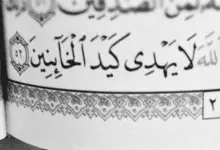 لَمِنَ الصَّٰدِقِينَ
اللَّهَ لَا يَهْدِى كَيْدَ الْخَآئِنِينَ ٥٢
٢